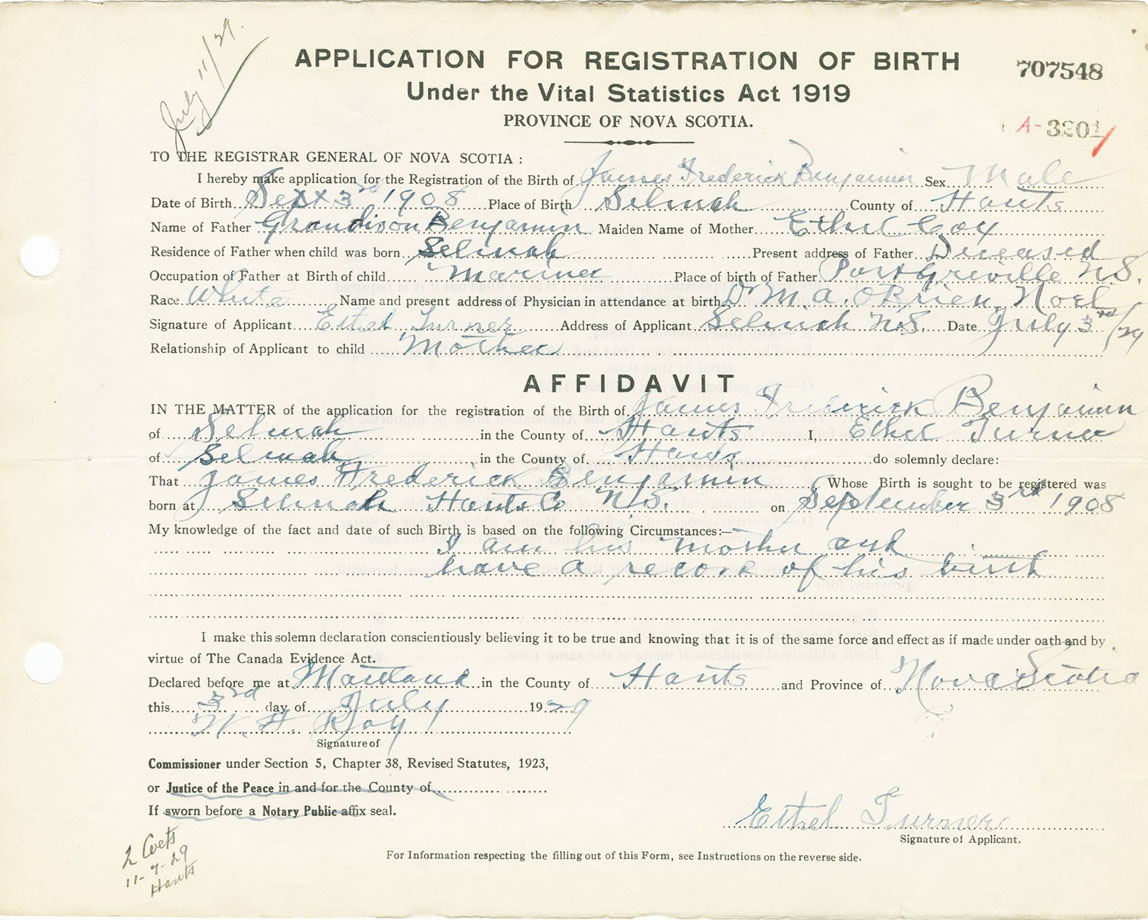 July 11/29.
APPLICATION FOR REGISTRATION OF BIRTH
707548
Under the Vital Statistics Act 1919
PROVINCE OF NOVA SCOTIA.
A-3201
TO THE REGISTRAR GENERAL OF NOVA SCOTIA:
I hereby make application for the Registration of the Birth of James Frederick Benjamin Sex Male
Date of Birth Sept 3rd 1908 Place of Birth Selmah County of Hants
Name of Father Grandison Benjamin Maiden Name of Mother Ethel Coy
Residence of Father when child was born Selmah Present address of Father Deceased
Occupation of Father at Birth of child Mariner Place of birth of Father Port Greville N.S.
Race White Name and present address of Physician in attendance at birth Dr M. A. O'Brien, Noel
Signature of Applicant Ethel Turner Address of Applicant Selmah N.S. Date July 3rd/29
Relationship of Applicant to child Mother
AFFIDAVIT
IN THE MATTER of the application for the registration of the Birth of James Frederick Benjamin
of Selmah in the County of Hants I, Ethel Turner
of Selmah in the County of Hants do solemnly declare:
That James Frederick Benjamin Whose Birth is sought to be registered was
born at Selmah Hants Co N.S. on September 3rd 1908
My knowledge of the fact and date of such Birth is based on the following Circumstances:—
I am his mother and
have a record of his birth
I make this solemn declaration conscientiously believing it to be true and knowing that it is of the same force and effect as if made under oath and by
virtue of The Canada Evidence Act.
Declared before me at Maitland in the County of Hants and Province of Nova Scotia
this 3rd day of July 1929
W. A.
Signature of
Commissioner under Section 5, Chapter 38, Revised Statutes, 1923,
or Justice of the Peace in and for the County of
If sworn before a Notary Public affix seal.
Ethel Turner
Signature of Applicant.
2 Certs
11-7-29
Hants
For Information respecting the filling out of this Form, see Instructions on the reverse side.